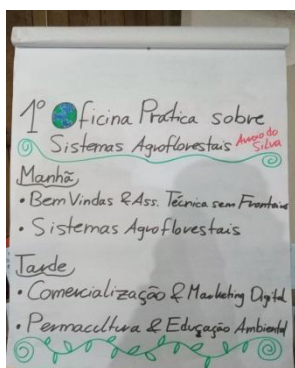 1º Oficina Prática sobre
Sistemas Agroflorestais
Silva
Manhã
• Bem Vindas & Ass. Técnica sem Fronteiras
• Sistemas Agroflorestais
Tarde
• Comercialização & Marketing Digital
• Permacultura & Educação Ambiental